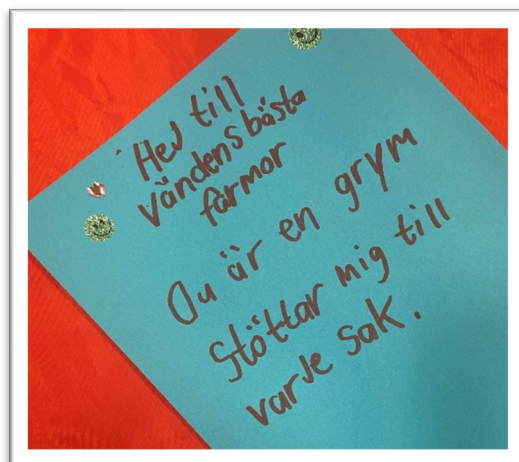 Hej till
vändens bästa
farmor
Du är en grym
Stöttar mig till
varje sak.